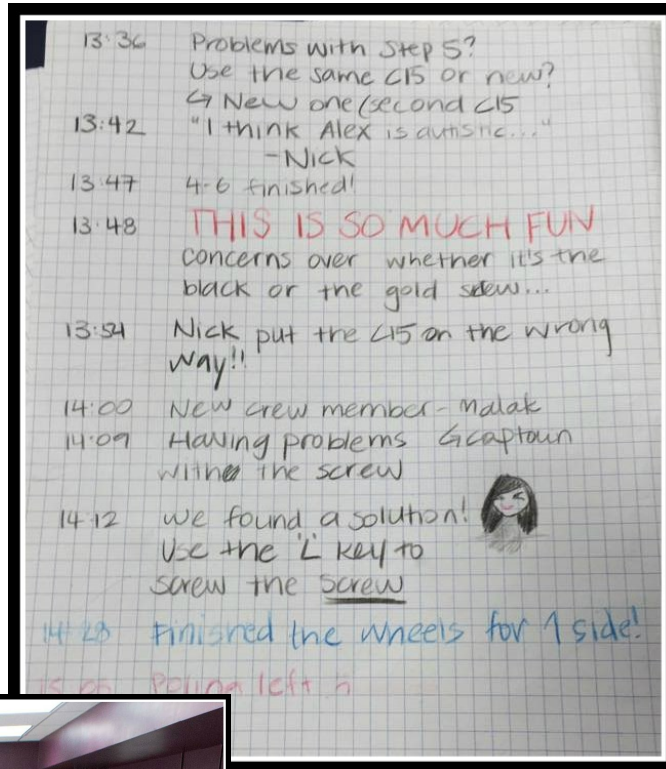 13:36 Problems with Step 5?
Use the same C15 or new?
↳ New one (second C15
13:42 "I think Alex is autistic..."
-Nick
13:47 4-6 finished!
13:48 THIS IS SO MUCH FUN
concerns over whether it's the
black or the gold screw...
13:54 Nick put the C15 on the wrong
way!!
14:00 New crew member - Malak
14:09 Having problems ↳ captain
with the screw
14:12 we found a solution!
Use the 'L' key to
screw the screw
14:28 Finished the wheels for 1 side!
left